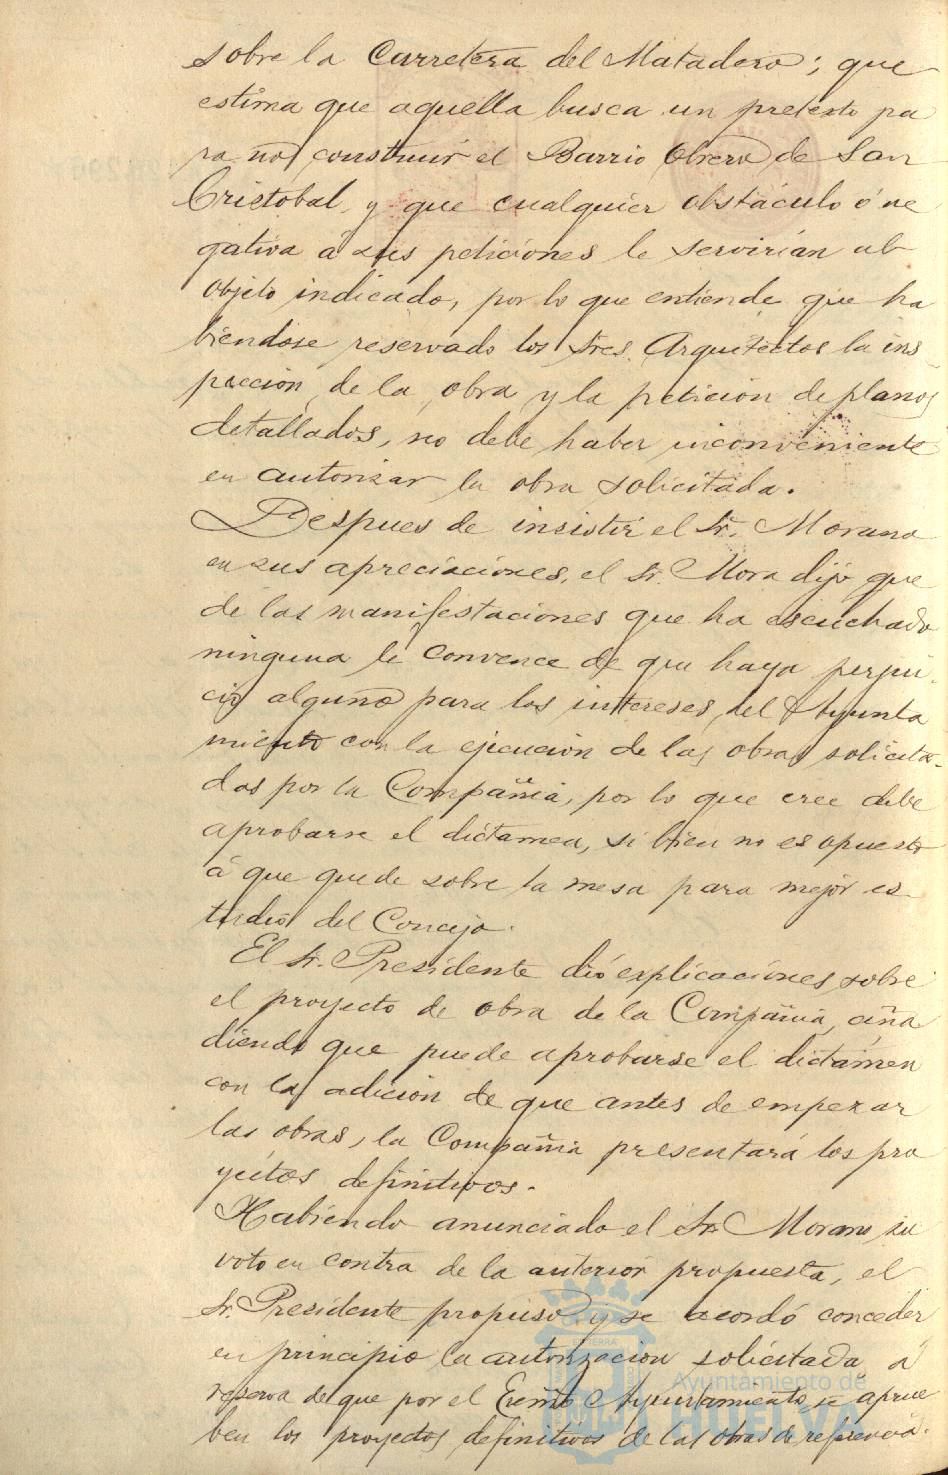 sobre la Carretera del Matadero; que
estima que aquella busca un pretexto pa
ra no construir el Barrio Obrero de San
Cristobal, y que cualquier obstáculo ó ne
gativa á sus peticiones le servirían al
objeto indicado, por lo que entiende que ha
biendose reservado los Sres. Arquitectos la ins
pección de la obra y la petición de planos
detallados, no debe haber inconveniente
en autorizar la obra solicitada.
Despues de insistir el Sr. Morano
en sus apreciaciones, el Sr. Mora dijo que
de las manifestaciones que ha escuchado
ninguna le convence de que haya perjui
cio alguno para los intereses del Ayunta
miento con la ejecución de las obras solicita-
das por la Compañia, por lo que cree debe
aprobarse el dictamen, si bien no es opuesto
á que quede sobre la mesa para mejor es-
tudio del Concejo.
El Sr. Presidente dió explicaciones sobre
el proyecto de obra de la Compañia, aña
diendo que puede aprobarse el dictámen
con la adición de que antes de empezar
las obras, la Compañia presentará los pro
yectos definitivos.
Habiendo anunciado el Sr. Morano su
voto en contra de la anterior propuesta, el
Sr. Presidente propuso y se acordó conceder
en principio la autorizacion solicitada á
reserva de que por el Excmo Ayuntamiento se aprue
ben los proyectos definitivos de las obras de referencia.
Ayuntamiento de
HUELVA